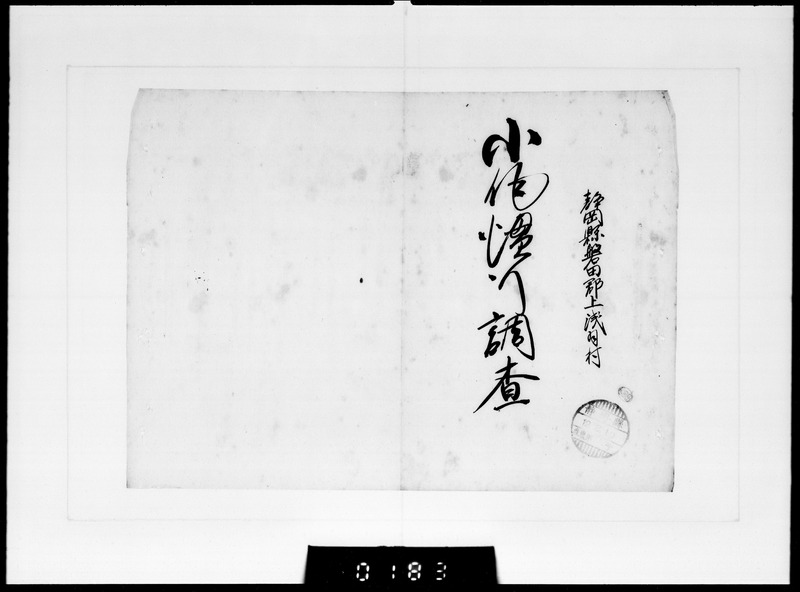 静岡縣磐田郡上浅羽村
小作慣行調査
0183